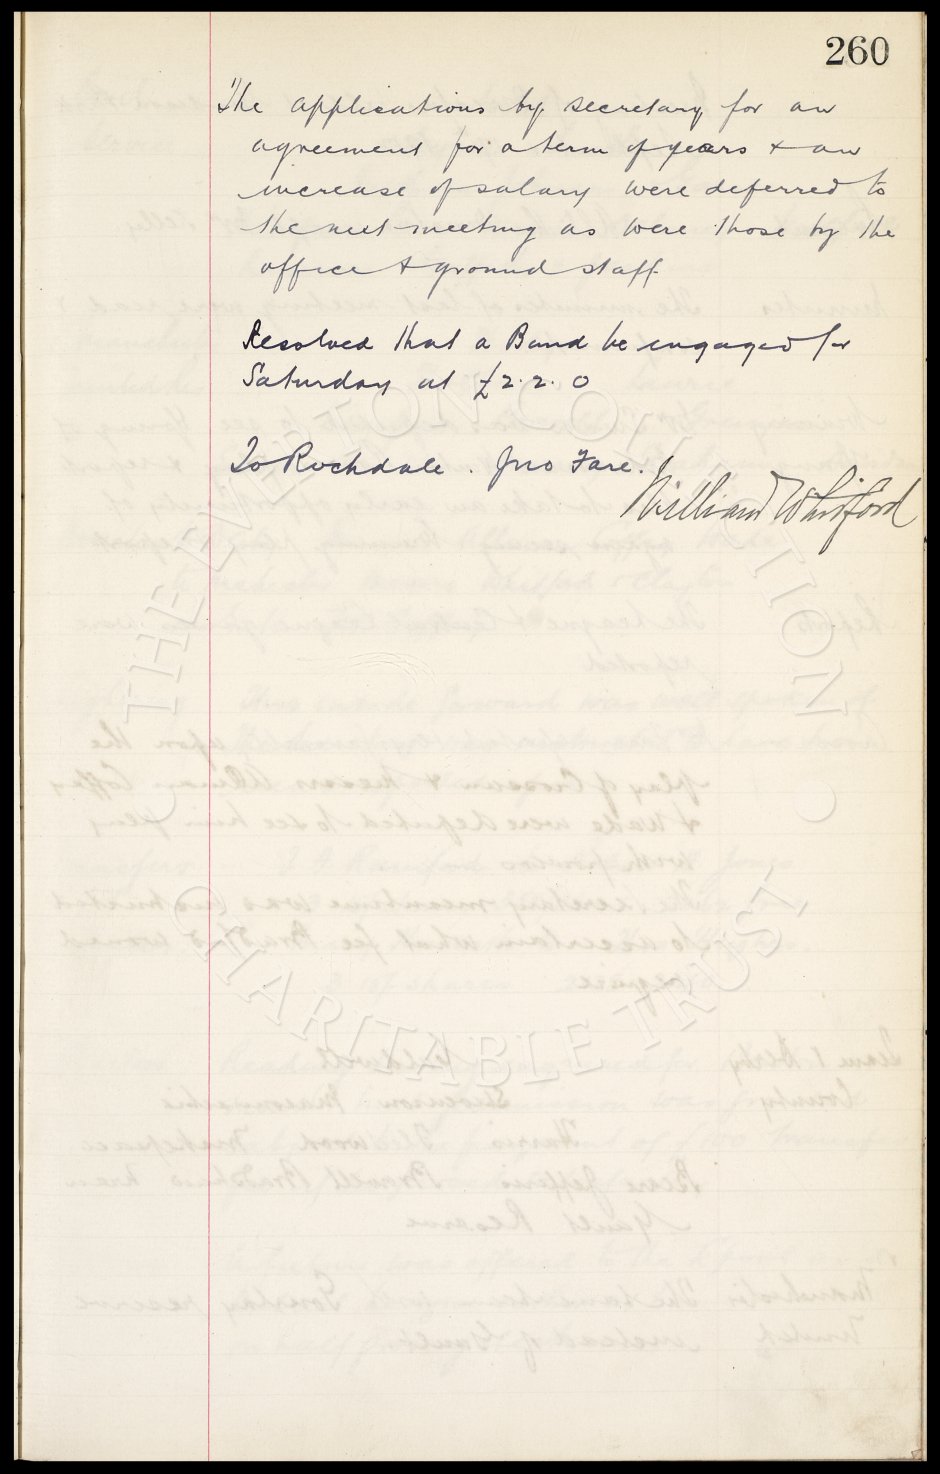 260
The applications by secretary for an
agreement for a term of years & an
increase of salary were deferred to
the next meeting as were those by the
office & ground staff.
Resolved that a Band be engaged for
Saturday at £2.2.0
To Rochdale. Jno Fare.
William Whitford
THE EVERTON COLLECTION
CHARITABLE TRUST